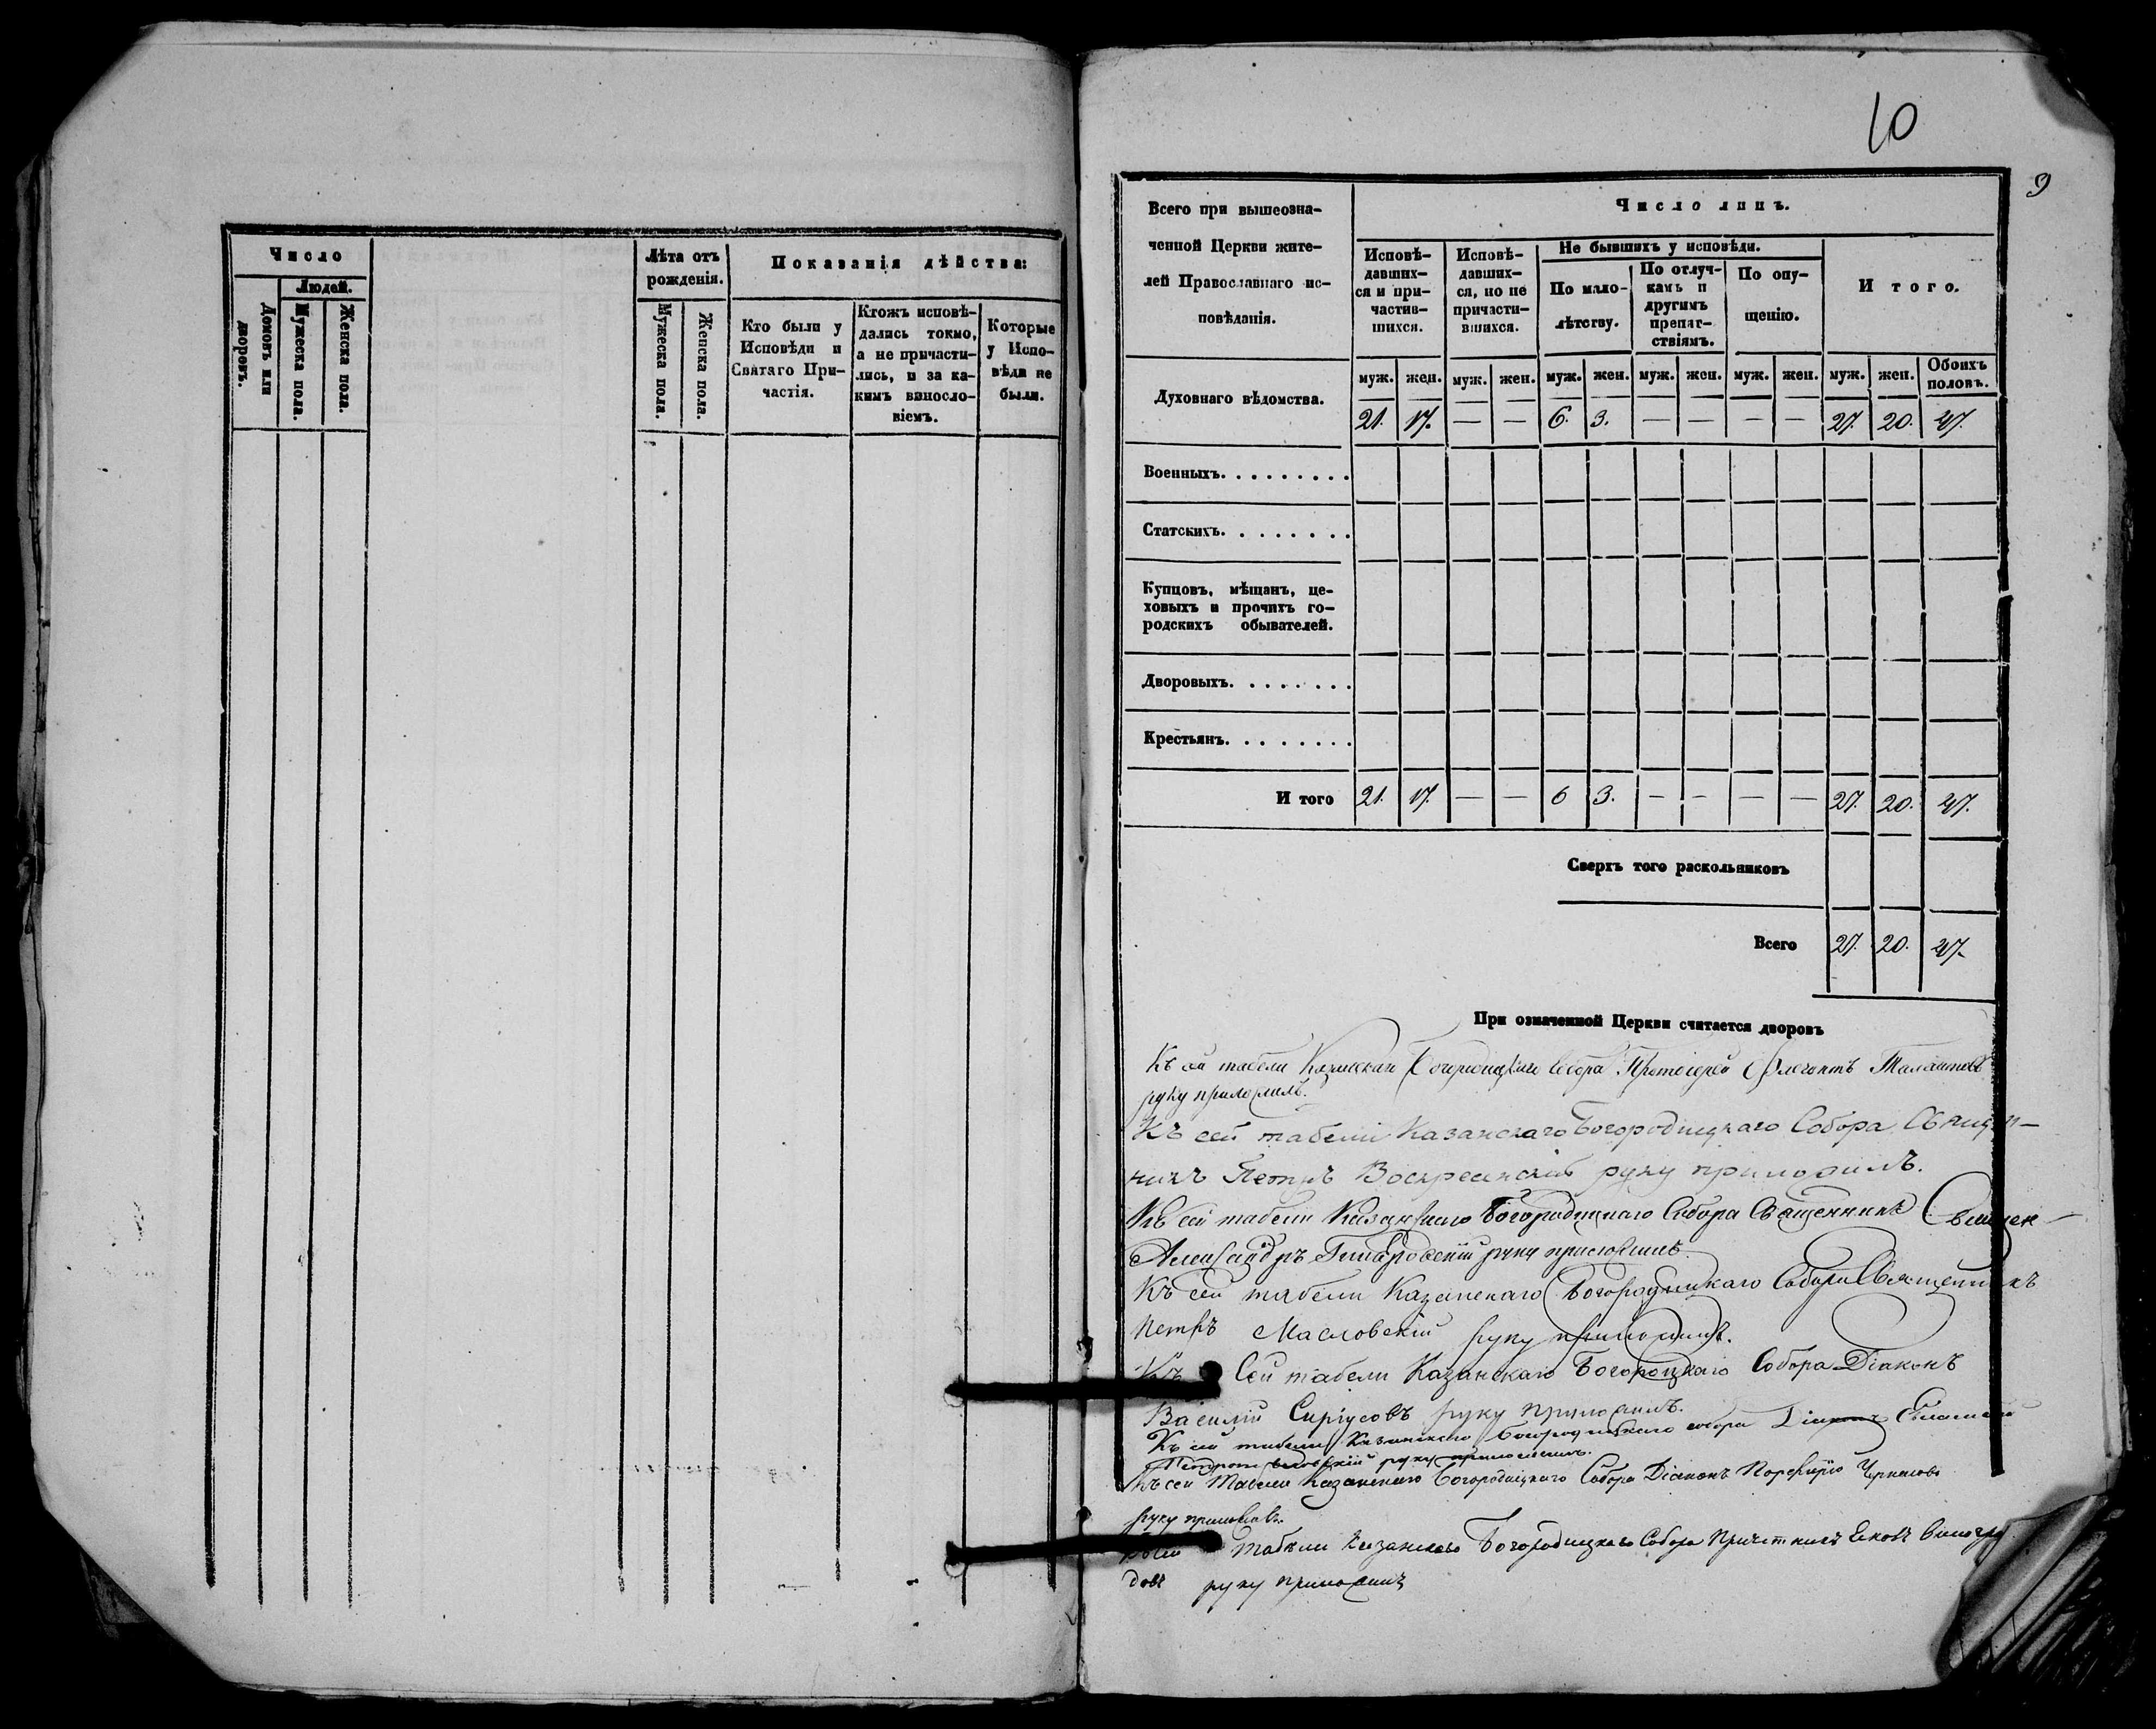 Число
Людей.
Домовъ или дворовъ.
Мужеска пола.
Женска пола.
Лѣта отъ рожденія.
Мужеска пола.
Женска пола.
Показанія дѣйства:
Кто были у
Исповѣди и
Святаго При-
частія.
Ктожъ исповѣ-
дались токмо,
а не причасти-
лись, и за ка-
кимъ винosло-
віемъ.
Которые
у Испо-
вѣди не
были.
10
9
Всего при вышеозна-
ченной Церкви жите-
лей Православнаго ис-
повѣданія.
Число лицъ.
Исповѣ-
давших-
ся и при-
частив-
шихся.
Исповѣ-
давших-
ся, но не
причасти-
вшихся.
Не бывшихъ у исповѣди.
По мало-
лѣтству.
По отлуч-
камъ и
другимъ
препят-
ствіямъ.
По опу-
щенію.
И того.
муж. жен. муж. жен. муж. жен. муж. жен. муж. жен. муж. жен. Обоихъ половъ.
Духовнаго вѣдомства. 21. 17. — — 6. 3. — — — — 27. 20. 47.
Военныхъ.........
Статскихъ........
Купцовъ, мѣщанъ, це-
ховыхъ и прочихъ го-
родскихъ обывателей.
Дворовыхъ........
Крестьянъ........
И того 21. 17. — — 6 3. — — — — 27. 20. 47.
Сверхъ того раскольниковъ
Всего 27. 20. 47.
При означенной Церкви считается дворовъ
Къ сей табели Собора Протоіерей Флегонтъ Талантовъ
руку приложилъ.
Къ сей табели Казанскаго Богородицкаго Собора Священ-
никъ Петръ Воскресенскій руку приложилъ.
Къ сей табели Казанскаго Богородицкаго Собора Священникъ
Александръ руку приложилъ.
Къ сей табели Казанскаго Богородицкаго Собора Священникъ
Петръ Масловскій руку приложилъ.
Къ Сей табели Казанскаго Богородцкаго Собора Діаконъ
Василій Сиріусовъ руку приложилъ.
Къ сей табели Казанскаго Богородицкаго собора Діаконъ
руку приложилъ.
Къ сей Табели Казанскаго Богородицкаго Собора Діаконъ Порфирій
руку приложилъ.
Къ сей табели Казанскаго Богородицкаго Собора Причетникъ Виногра
довъ руку приложилъ